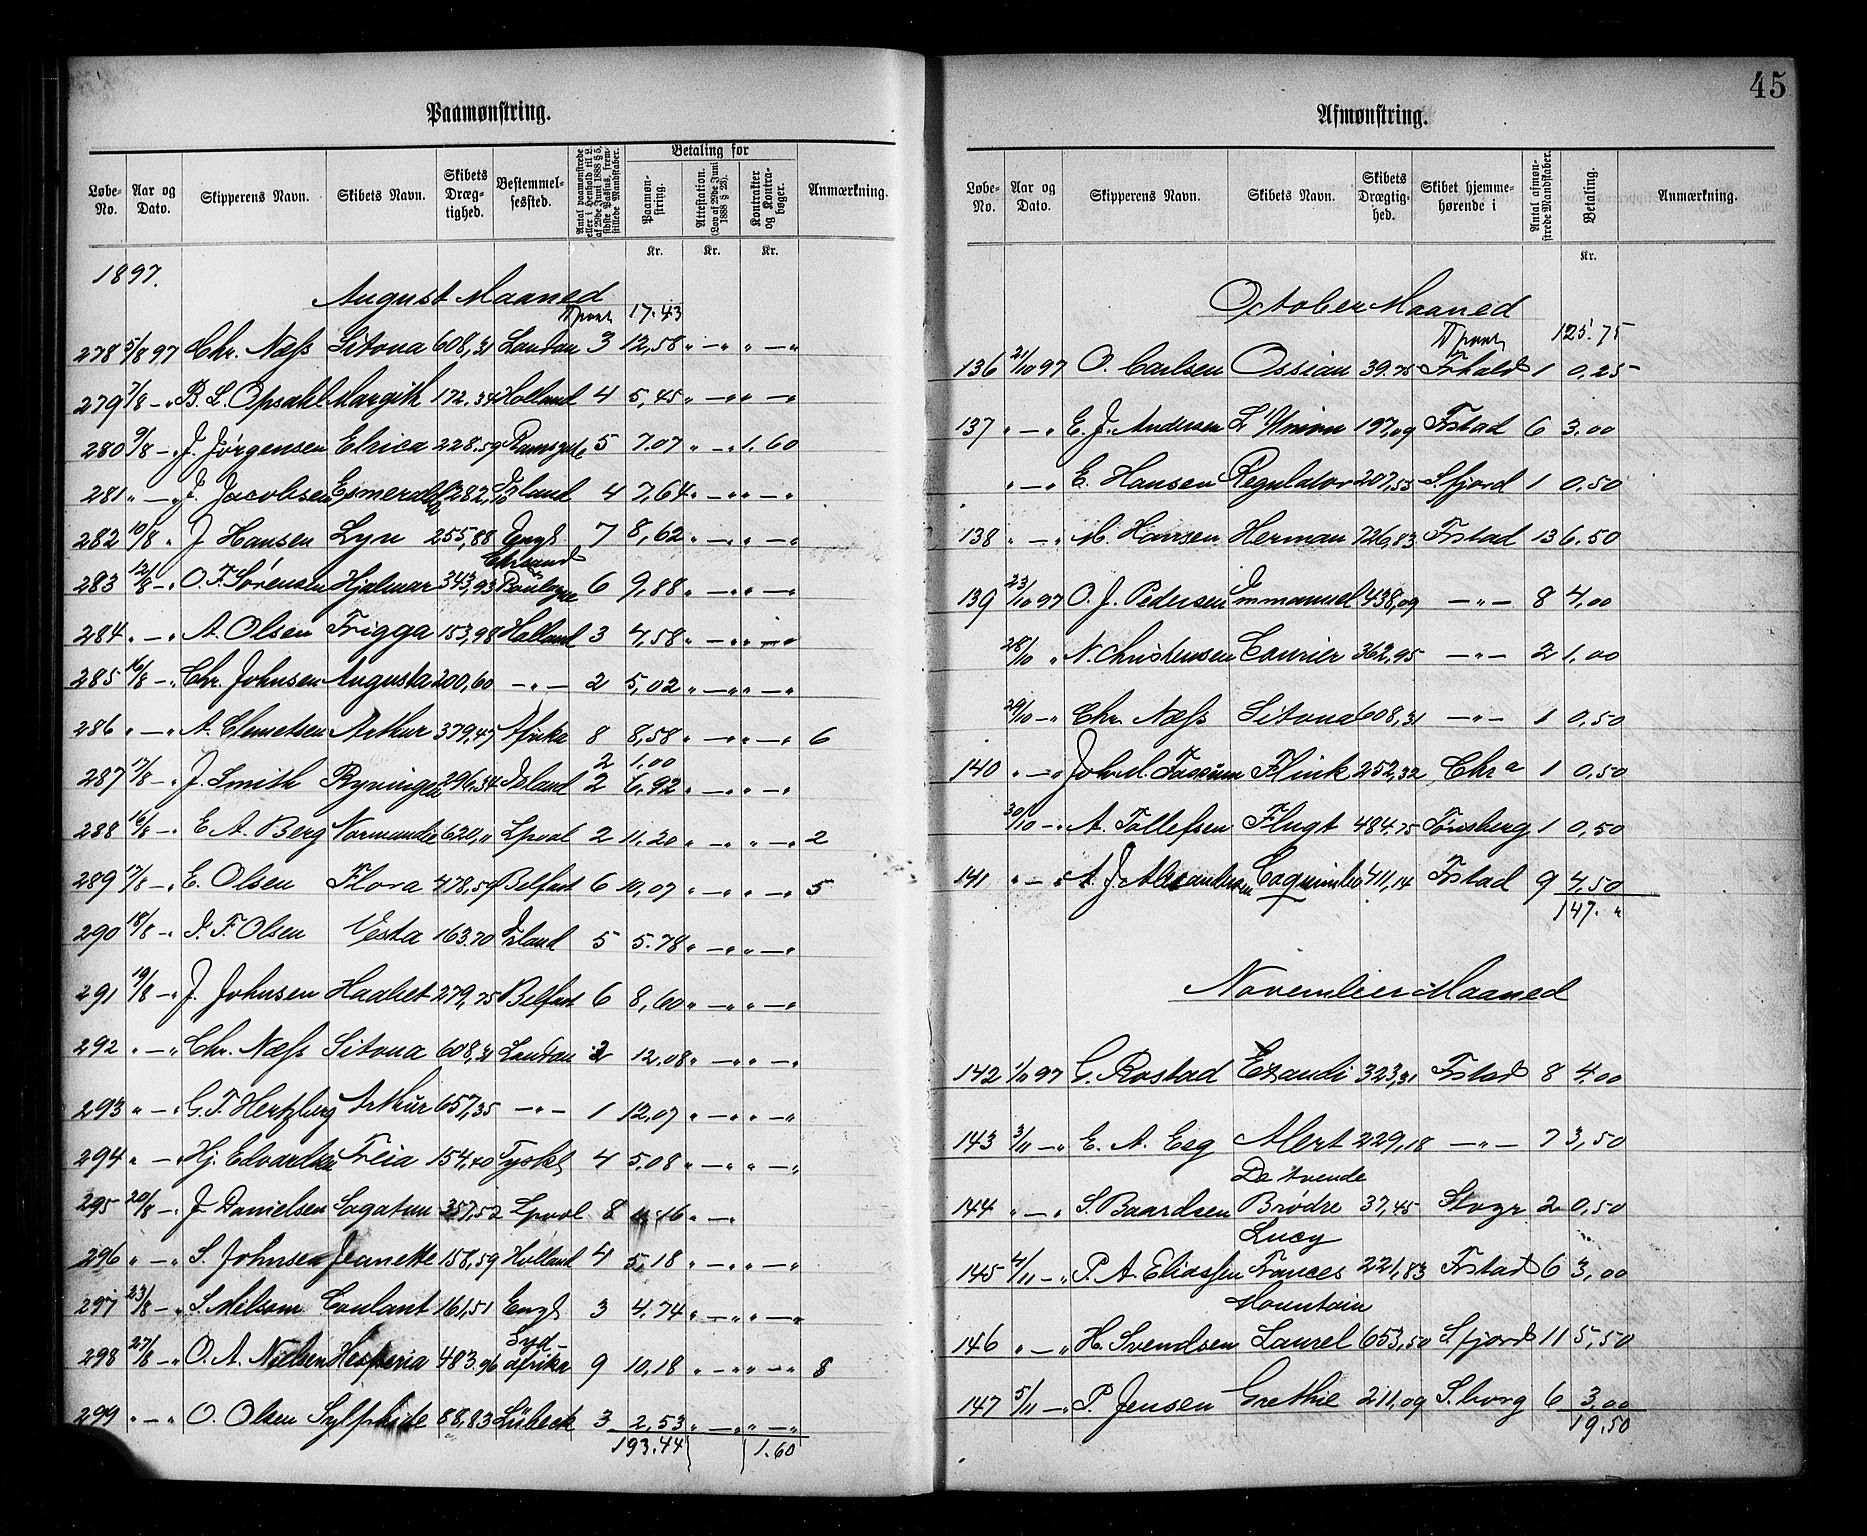 45
Paamønstring.
Løbe-No. Aar og Dato. Skipperens Navn. Skibets Navn. Skibets Dræg-tighed. Bestemmel-sessted. Antal paamønstrede eller i Henhold til L. af 29de Juni 1888 § 5, sidste Passus, frem-stillede Mandskaber. Betaling for Paamøn-string. Attestation. (Lov af 29de Juni 1888 § 28). Kontrakter og Kontra-bøger. Anmærkning.
Kr. Kr. Kr.
1897.
August Maaned
Tpoort 17.43
278 5/8 97 Chr. Næss Sitona 608,31 London 3 12,58 " — " " — "
279 7/8 — " B. L. Opsahl Margith 172.34 Holland 4 5,45 " — " " — "
280 9/8 — " J. Jörgensen Elrica 228.59 Ramsgate 5 7.07 " — " 1.60
281 " — " J. Jacobsen Esmeralda 282, Island 4 7,64 " — " " — "
282 10/8 " J Hansen Lyn 255,88 Engl 7 8,62 " — " " — "
283 12/8 — " O. T. Sørensen Hjalmar 343,93 Chrsand Boulogne 6 9,88 " — " " — "
284 " — " A. Olsen Frigga 153,98 Holland 3 4,58 " — " " — "
285 16/8 — " Chr. Johnsen Augusta 200,60 — " — 2 5,02 " — " " — "
286 " — " A. Clemetsen Arthur 379,47 Afrika 8 8,58 " — " " — " 6
2 1.00
287 17/8 — " J. Smith Ryvingen 296,34 Island 2 6,92 " — " " — "
288 16/8 — " E A. Berg Normandie 620," Lpool 2 11.20 " — " " — " 2
289 17/8 — " E. Olsen Flora 478,59 Belfast 6 10,07 " — " " — " 5
290 18/8 — " J. F. Olsen Vesta 163.70 Island 5 5.78 " — " " — "
291 19/8 — " J. Johnsen Haabet 279,75 Belfast 6 8,60 " — " " — "
292 " — " Chr. Næss Sitona 608,31 London 2 12,08 " — " " — "
293 " — " G. T. Hertzberg Arthur 657,35 — " — 1 12,07 " — " " — "
294 " — " Hj. Edvardsen Freia 154,40 Tyskl 4 5,08 " — " " — "
295 20/8 — " J. Danielsen Cagatun 357,52 Lpool 8 11.16 " — "
296 " — " S. Johnsen Jeanette 158,59 Holland 4 5,18 " — " " — "
297 23/8 — " S. Melsom Coulant 161,51 Engl 3 4.74 " — " " — "
298 27/8 — " O. A. Nielsen Hesperia 483.96 Syd-afrika 9 10,18 " — " " — " 8
299 " — " O. Olsen Sylphide 88,83 Lübeck 3 2,53 " — " " — "
193.44 1.60
Afmønstring.
Løbe-No. Aar og Dato. Skipperens Navn. Skibets Navn. Skibets Drægtig-hed. Skibet hjemme-hørende i Antal afmøn-strede Mandskaber. Betaling. Anmærkning.
Kr.
October Maaned
Tpoort 125.75
136 21/10 97 O. Carlsen Ossian 39.75 Frhald 1 0,25
137 " — " E. J. Andersen L'Union 197,09 Frstad 6 3,00
" — " E. Hansen Regulator 207,53 S.fjord 1 0,50
138 " — " M. Hansen Herman 726,83 Frstad 13 6.50
139 23/10 97 O. J. Pedersen Immanuel 438,09 — " — 8 4,00
28/10 " N. Christensen Courier 362,95 — " — 2 1,00
29/10 — " Chr. Næss Sitona 608,31 — " — 1 0,50
140 " — " Joh. M. Fossum Flink 252,32 Chr a 1 0,50
30/10 — " A. Tollefsen Flugt 484.75 Tönsberg 1 0,50
141 " — " A. J. Alexandersen Coquimbo 411,14 Frstad 9 4,50
147. "
November Maaned
142 1/11 97 G. Rostad Exaudi 323,31 Frstad 8 4.00
143 3/11 — " E. A. Eeg Alert 229,18 — " — 7 3,50
144 " — " S. Baardsen De tvende Brødre 37,45 Stvgr 2 0,50
145 4/11 — " P. A. Eliassen Lucy Frances 221,83 Frstad 6 3,00
146 " — " H. Svendsen Mountain Laurel 653,50 S.fjord 11 5,50
147 5/11 — " P. Jensen Grethie 211,09 S.borg 6 3,00
19.50